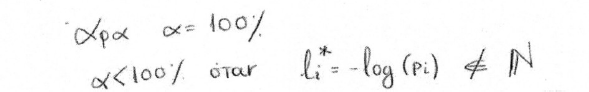 Άρα α = 100%
α<100% όταν li* = -log(pi) ∉ ℕ